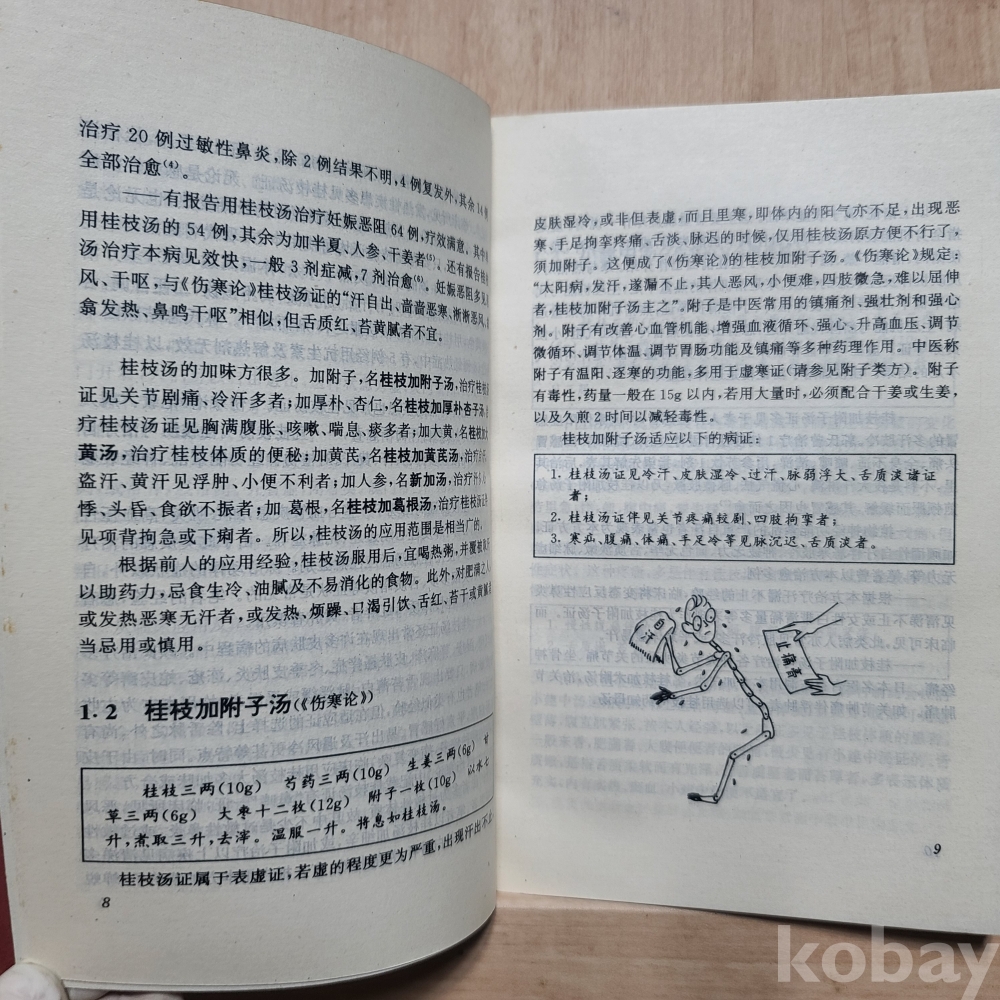 治疗 20 例过敏性鼻炎,除 2 例结果不明,4 例复发外,其余 14 例
全部治愈⁽⁴⁾。
——有报告用桂枝汤治疗妊娠恶阻 64 例,疗效满意。其中单
用桂枝汤的 54 例,其余为加半夏、人参、干姜者⁽⁵⁾。还有报告
汤治疗本病见效快,一般 3 剂症减,7 剂治愈⁽⁶⁾。妊娠恶阻多见
风、干呕,与《伤寒论》桂枝汤证的“汗自出、啬啬恶寒、淅淅恶风、
翕发热、鼻鸣干呕”相似,但舌质红、苔黄腻者不宜。
桂枝汤的加味方很多。加附子,名桂枝加附子汤,治疗桂枝
证见关节剧痛、冷汗多者;加厚朴、杏仁,名桂枝加厚朴杏子汤,
疗桂枝汤证见胸满腹胀、咳嗽、喘息、痰多者;加大黄,名桂枝加大
黄汤,治疗桂枝体质的便秘;加黄芪,名桂枝加黄芪汤,治疗
盗汗、黄汗见浮肿、小便不利者;加人参,名新加汤,治疗汗
悸、头昏、食欲不振者;加 葛根,名桂枝加葛根汤,治疗桂枝汤证
见项背拘急或下痢者。所以,桂枝汤的应用范围是相当广的。
根据前人的应用经验,桂枝汤服用后,宜喝热粥,并覆被取
以助药力,忌食生冷、油腻及不易消化的食物。此外,对肥满之人
或发热恶寒无汗者,或发热、烦躁、口渴引饮、舌红、苔干或黄腻
当忌用或慎用。
1.2 桂枝加附子汤(《伤寒论》)
桂枝三两(10g) 芍药三两(10g) 生姜三两(6g) 甘
草三两(6g) 大枣十二枚(12g) 附子一枚(10g) 以水七
升,煮取三升,去滓。温服一升。将息如桂枝汤。
桂枝汤证属于表虚证,若虚的程度更为严重,出现汗出不止
8
皮肤湿冷,或非但表虚,而且里寒,即体内的阳气亦不足,出现恶
寒、手足拘挛疼痛、舌淡、脉迟的时候,仅用桂枝汤原方便不行了,
须加附子。这便成了《伤寒论》的桂枝加附子汤。《伤寒论》规定:
“太阳病,发汗,遂漏不止,其人恶风,小便难,四肢微急,难以屈伸
者,桂枝加附子汤主之”。附子是中医常用的镇痛剂、强壮剂和强心
剂。附子有改善心血管机能、增强血液循环、强心、升高血压、调节
微循环、调节体温、调节胃肠功能及镇痛等多种药理作用。中医称
附子有温阳、逐寒的功能,多用于虚寒证(请参见附子类方)。附子
有毒性,药量一般在 15g 以内,若用大量时,必须配合干姜或生姜,
以及久煎 2 时间以减轻毒性。
桂枝加附子汤适应以下的病证:
1. 桂枝汤证见冷汗、皮肤湿冷、过汗、脉弱浮大、舌质淡诸证
者;
2. 桂枝汤证伴见关节疼痛较剧、四肢拘挛者;
3. 寒疝、腹痛、体痛、手足冷等见脉沉迟、舌质淡者。
自汗
止痛膏
9
kobay